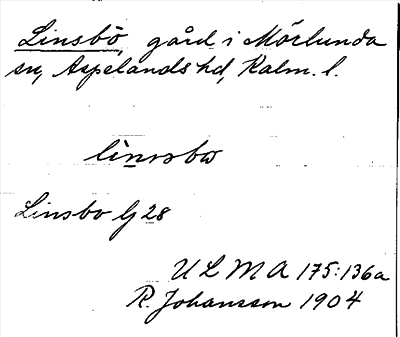 Linsbö, gård i Mörlunda
sn, Aspelands hd, Kalm. l.
lìnsbω
Linsbo G 28
ULMA 175:136a
R. Johansson 1904